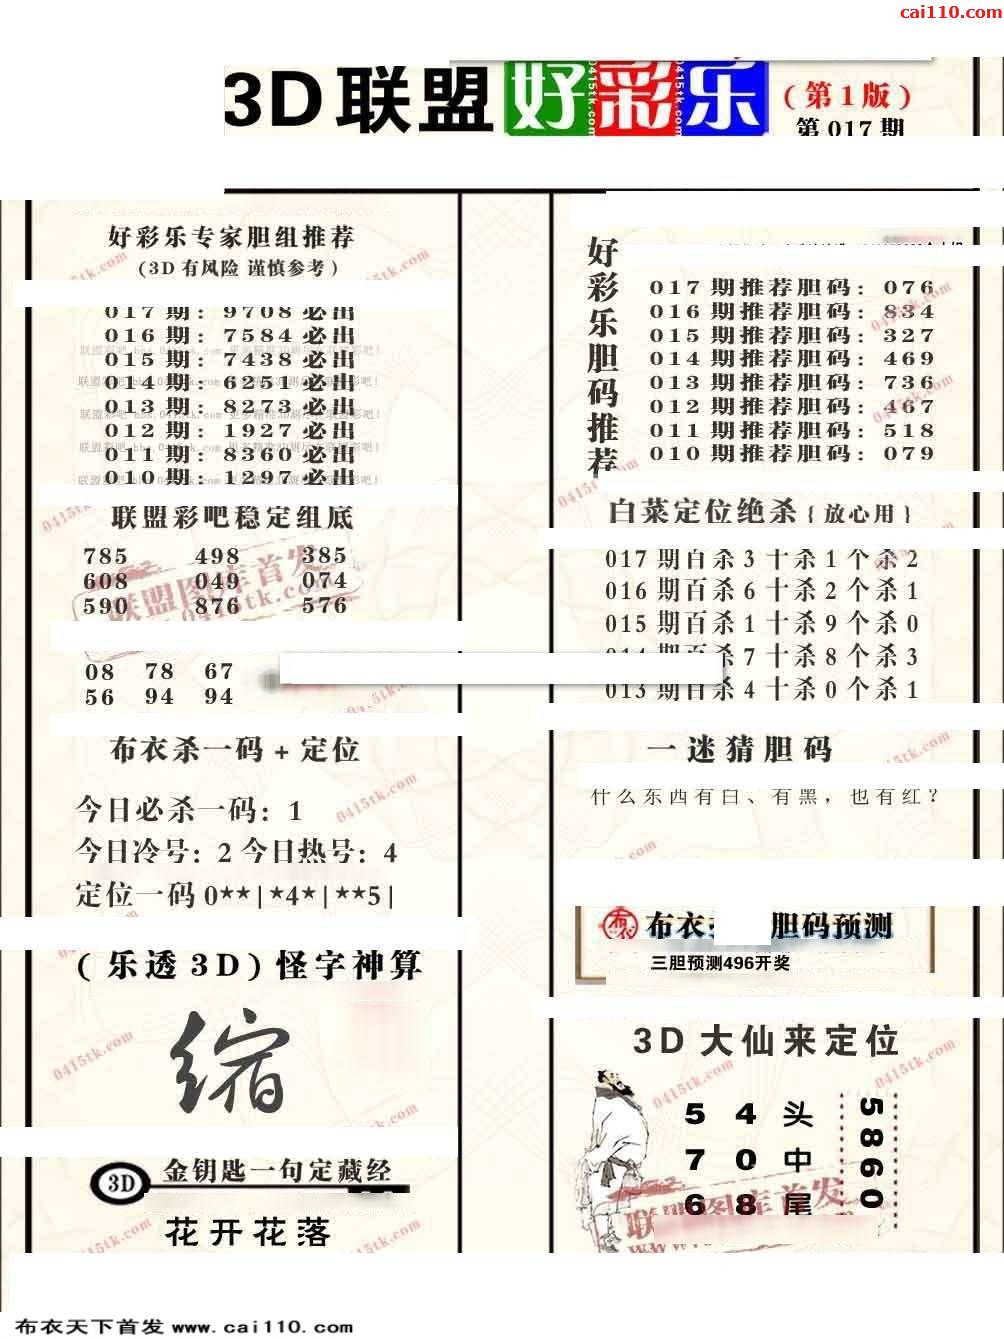 cai110.com
3D联盟 好彩乐
(第1版)
第017期
好彩乐专家胆组推荐
(3D有风险 谨慎参考)
017期: 9708 必出
016期: 7584 必出
015期: 7438 必出
014期: 6251 必出
013期: 8273 必出
012期: 1927 必出
011期: 8360 必出
010期: 1297 必出
联盟彩吧稳定组底
785 498 385
608 049 074
590 876 576
08 78 67
56 94 94
布衣杀一码+定位
今日必杀一码: 1
今日冷号: 2 今日热号: 4
定位一码 0**|*4*|**5|
(乐透3D)怪字神算
缩
3D 金钥匙一句定藏经
花开花落
好彩乐胆码推荐
017期推荐胆码: 076
016期推荐胆码: 834
015期推荐胆码: 327
014期推荐胆码: 469
013期推荐胆码: 736
012期推荐胆码: 467
011期推荐胆码: 518
010期推荐胆码: 079
白菜定位绝杀{放心用}
017期百杀3十杀1个杀2
016期百杀6十杀2个杀1
015期百杀1十杀9个杀0
杀7十杀8个杀3
013期百杀4十杀0个杀1
一迷猜胆码
什么东西有白、有黑，也有红?
布衣
胆码预测
三胆预测496开奖
3D大仙来定位
5 4 头
7 0 中
6 8 尾
5860
联盟图库首发
0415tk.com
布衣天下首发 www.cai110.com